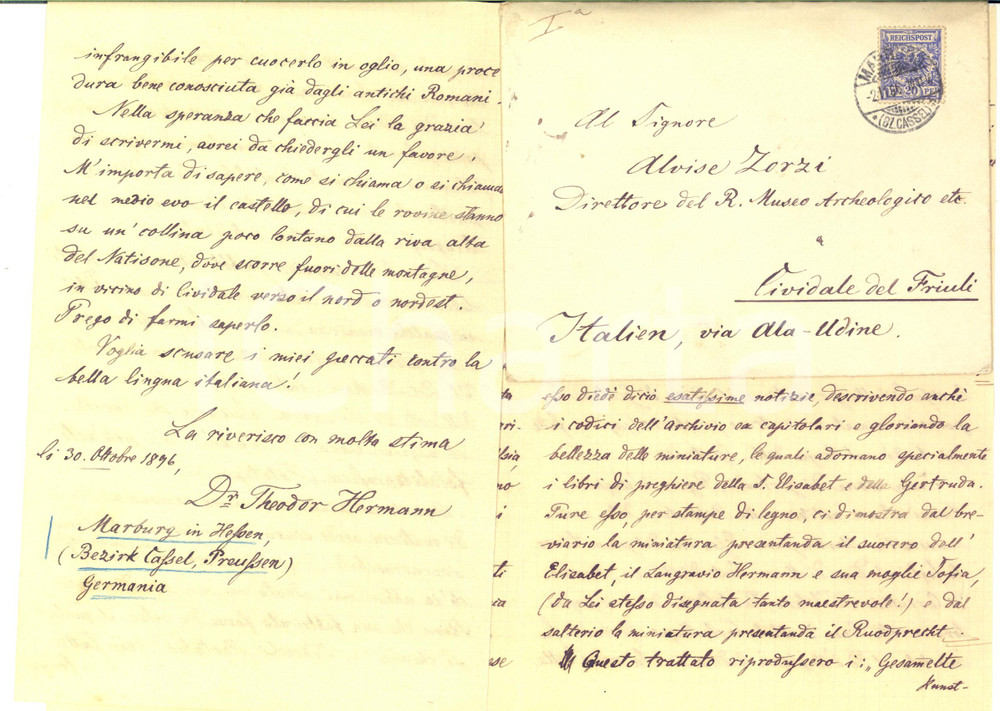 infrangibile per cuocerlo in oglio, una proce
dura bene conosciuta già dagli antichi Romani.
Nella speranza che faccia Lei la grazia
di scrivermi, avrei da chiedergli un favore.
M'importa di sapere, come si chiama o si chiamava
nel medio evo il castello, di cui le rovine stanno
su un' collina poco lontano dalla riva alta
del Natisone, dove scorre fuori delle montagne,
in vicino di Cividale verso il nord o nordest.
Prego di farmi saperlo.
Voglia scusare i miei peccati contro la
bella lingua italiana!
La riverisco con molta stima
li 30. Ottobre 1896,
Dr. Theodor Hermann
Marburg in Hessen,
(Bezirk Cassel, Preussen)
Germania
Ia
REICHSPOST
MARBURG
(BZ. CASSEL)
Al Signore
Alvise Zorzi
Direttore del R. Museo Archeologico etc.
a
Cividale del Friuli
Italien, via Ala-Udine.
esso diedè diciò esatissime notizie, descrivendo anche
i codici dell'Archivio ex capitolari e gloriando la
bellezza delle miniature, le quali adornano specialmente
i libri di preghiere della S. Elisabet e della Gertruda.
Pure esso, per stampe di legno, ci dimostra dal bre-
viario la miniatura presentanda il suocero dell'
Elisabet, il Langravio Hermann e sua moglie Sofia,
(da Lei stesso disegnata tanto maestrevole!) e dal
salterio la miniatura presentanda il Ruodprecht.
Questo trattato riprodussero i: „Gesamelte
Kunst-